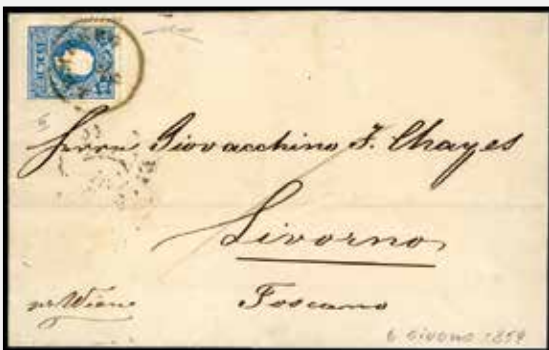 Herrn Giovacchino J. Chayes
Livorno
Toscana
per Wien
6 Giugno 1859